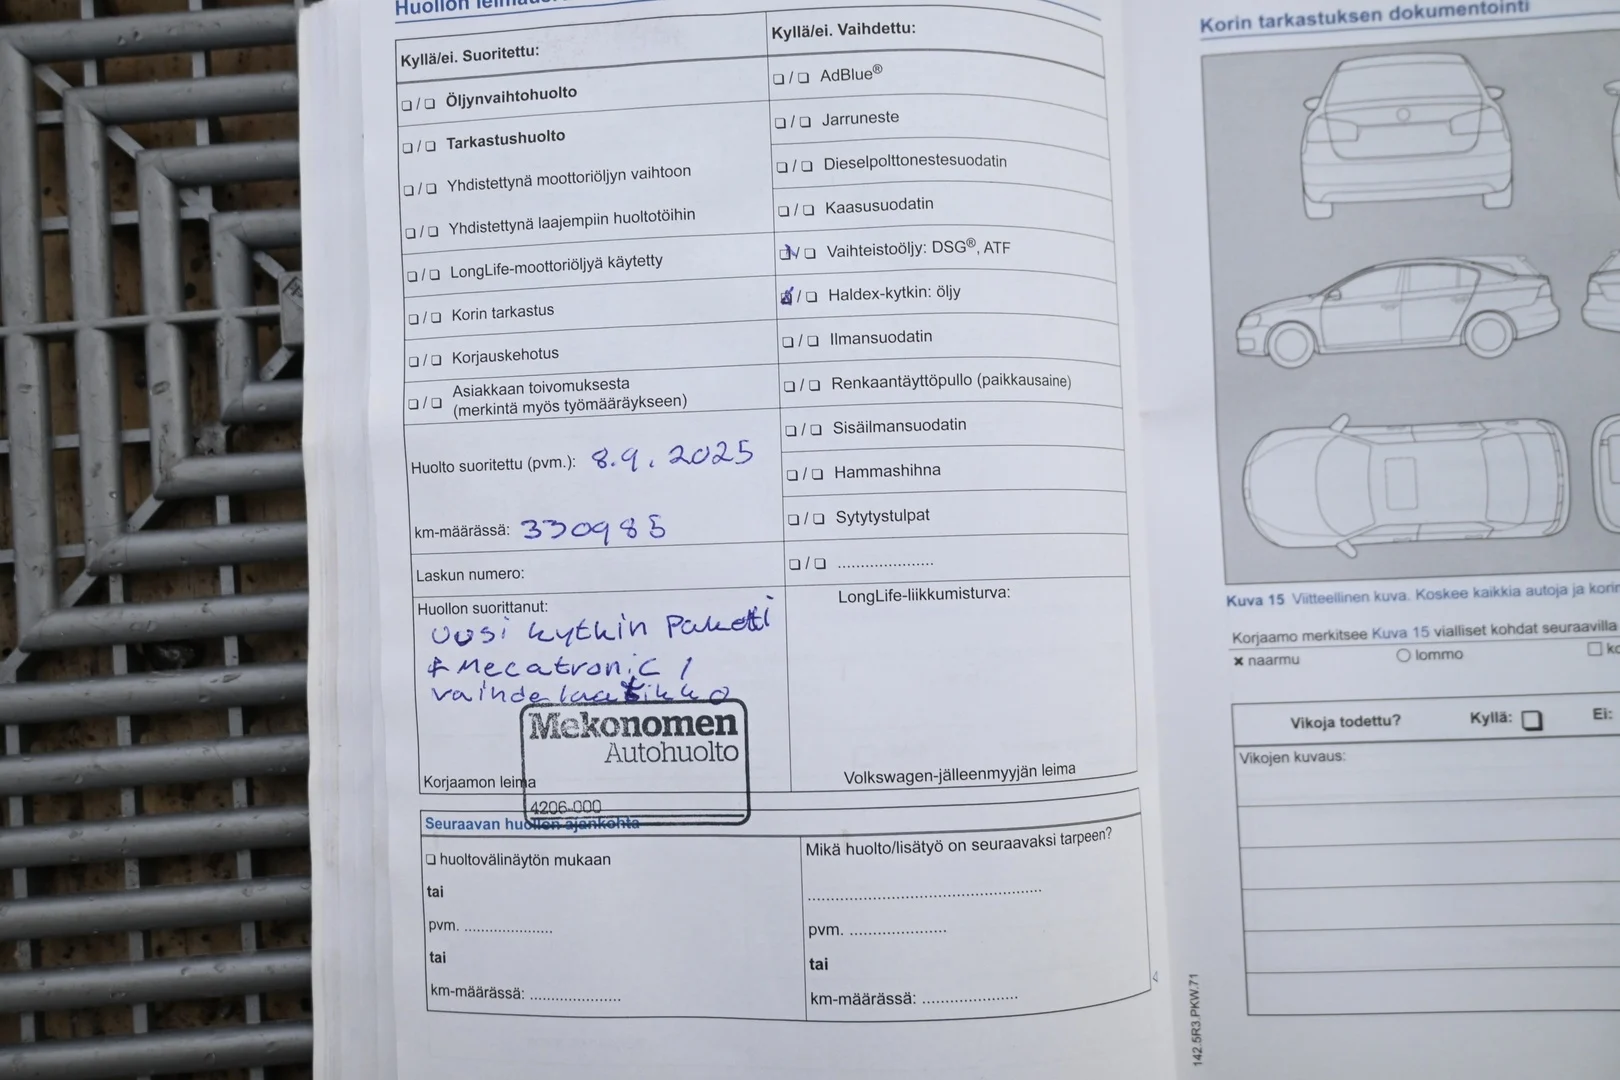 Kyllä/ei. Suoritettu:
❏/❏ Öljynvaihtohuolto
❏/❏ Tarkastushuolto
❏/❏ Yhdistettynä moottoriöljyn vaihtoon
❏/❏ Yhdistettynä laajempiin huoltotöihin
❏/❏ LongLife-moottoriöljyä käytetty
❏/❏ Korin tarkastus
❏/❏ Korjauskehotus
❏/❏ Asiakkaan toivomuksesta
(merkintä myös työmääräykseen)
Huolto suoritettu (pvm.): 8.9.2025
km-määrässä: 330985
Laskun numero:
Huollon suorittanut:
Uusi kytkin Paketti
+ Mecatronic /
vaihdelaatikko
Mekonomen
Autohuolto
Korjaamon leima
4206-000
Kyllä/ei. Vaihdettu:
❏/❏ AdBlue®
❏/❏ Jarruneste
❏/❏ Dieselpolttonestesuodatin
❏/❏ Kaasusuodatin
❏/❏ Vaihteistoöljy: DSG®, ATF
❏/❏ Haldex-kytkin: öljy
❏/❏ Ilmansuodatin
❏/❏ Renkaantäyttöpullo (paikkausaine)
❏/❏ Sisäilmansuodatin
❏/❏ Hammashihna
❏/❏ Sytytystulpat
❏/❏ .....................
LongLife-liikkumisturva:
Volkswagen-jälleenmyyjän leima
Seuraavan huollon ajankohta
❏ huoltovälinäytön mukaan
tai
pvm. ....................
tai
km-määrässä: ....................
Mikä huolto/lisätyö on seuraavaksi tarpeen?
..................................................
pvm. ....................
tai
km-määrässä: ....................
Korin tarkastuksen dokumentointi
Kuva 15 Viitteellinen kuva. Koskee kaikkia autoja ja
Korjaamo merkitsee Kuva 15 vialliset kohdat seuraavilla
✖ naarmu ○ lommo
Vikoja todettu? Kyllä: ❏ Ei:
Vikojen kuvaus:
142.5R3.PKW.71